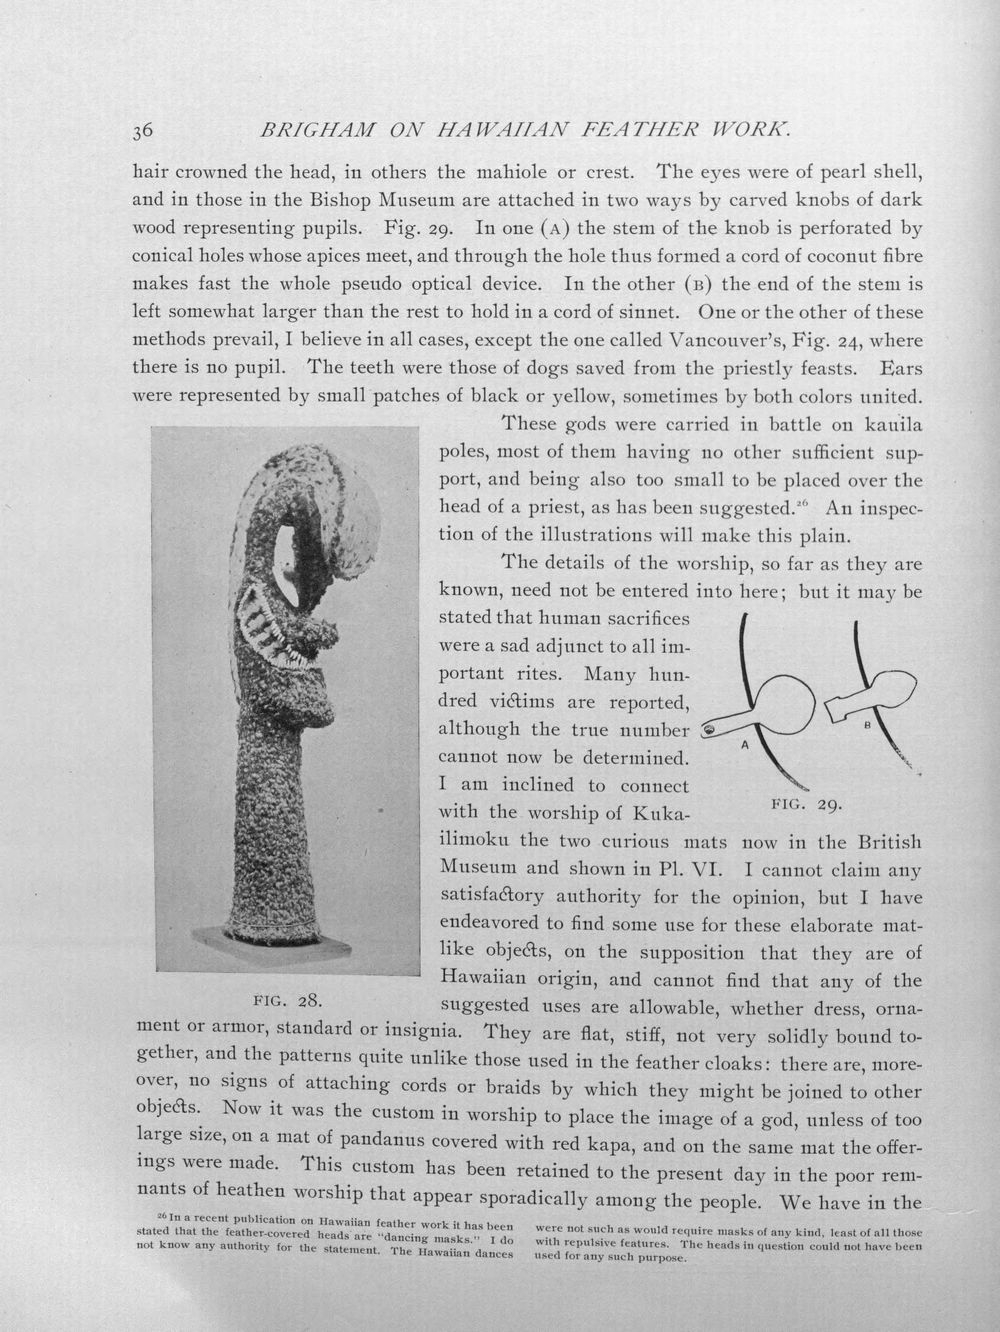 36
BRIGHAM ON HAWAIIAN FEATHER WORK.
hair crowned the head, in others the mahiole or crest. The eyes were of pearl shell,
and in those in the Bishop Museum are attached in two ways by carved knobs of dark
wood representing pupils. Fig. 29. In one (A) the stem of the knob is perforated by
conical holes whose apices meet, and through the hole thus formed a cord of coconut fibre
makes fast the whole pseudo optical device. In the other (B) the end of the stem is
left somewhat larger than the rest to hold in a cord of sinnet. One or the other of these
methods prevail, I believe in all cases, except the one called Vancouver's, Fig. 24, where
there is no pupil. The teeth were those of dogs saved from the priestly feasts. Ears
were represented by small patches of black or yellow, sometimes by both colors united.
These gods were carried in battle on kauila
poles, most of them having no other sufficient sup-
port, and being also too small to be placed over the
head of a priest, as has been suggested.²⁶ An inspec-
tion of the illustrations will make this plain.
The details of the worship, so far as they are
known, need not be entered into here; but it may be
stated that human sacrifices
were a sad adjunct to all im-
portant rites. Many hun-
dred victims are reported,
although the true number
cannot now be determined.
I am inclined to connect
with the worship of Kuka-
ilimoku the two curious mats now in the British
Museum and shown in Pl. VI. I cannot claim any
satisfactory authority for the opinion, but I have
endeavored to find some use for these elaborate mat-
like objects, on the supposition that they are of
Hawaiian origin, and cannot find that any of the
suggested uses are allowable, whether dress, orna-
ment or armor, standard or insignia. They are flat, stiff, not very solidly bound to-
gether, and the patterns quite unlike those used in the feather cloaks: there are, more-
over, no signs of attaching cords or braids by which they might be joined to other
objects. Now it was the custom in worship to place the image of a god, unless of too
large size, on a mat of pandanus covered with red kapa, and on the same mat the offer-
ings were made. This custom has been retained to the present day in the poor rem-
nants of heathen worship that appear sporadically among the people. We have in the
A
B
FIG. 29.
FIG. 28.
²⁶ In a recent publication on Hawaiian feather work it has been
stated that the feather-covered heads are "dancing masks." I do
not know any authority for the statement. The Hawaiian dances
were not such as would require masks of any kind, least of all those
with repulsive features. The heads in question could not have been
used for any such purpose.